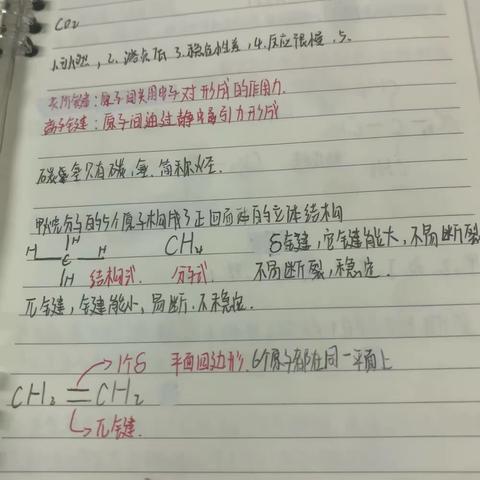 CO₂
1.可燃, 2.熔点低 3.稳定性差, 4.反应很慢, 5.
共价键:原子间共用电子对形成的作用力.
离子键:原子间通过静电吸引力形成
碳氢, 简称烃.
甲烷分子的5个原子构成了正四面体的立体结构
H H C H H 结构式. CH₄ 分子式. δ键, 键能大, 不易断裂
不易断裂, 稳定.
π键, 键能小, 易断, 不稳定.
1个δ 平面四边形. 6个原子都在同一平面上
CH₂=CH₂
π键.